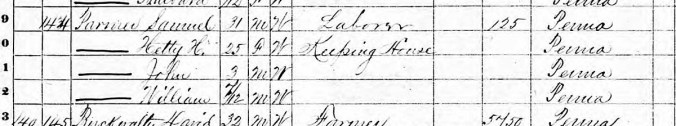 9 144 Parmer Samuel 31 M W Laborer 125 Penna
0 —— Hetty H. 25 F W Keeping House Penna
1 —— John 3 M W Penna
2 —— William 7/12 M W Penna
3 145 David 32 M W Farmer 5750 Penna